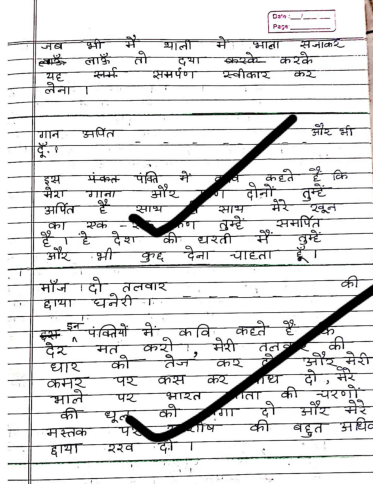 Date :
Page:
जब भी मैं थाली में भाल सजाकर
लाऊँ तो दया करके करके
यह समर्पण स्वीकार कर
लेना ।
गान अर्पित - - - और भी
दूँ ।
इस पंक्ति में कवि कहते हैं कि
मेरा गाना और दोनों तुम्हें
अर्पित हैं साथ साथ मेरे खून
का एक - कण तुम्हें समर्पित
है । हे देश की धरती मैं तुम्हें
और भी कुछ देना चाहता हूँ ।
माँज दो तलवार - - - की
छाया घनेरी ।
इन पंक्तियों में कवि कहते हैं
देर मत करो, मेरी तलवार की
धार को तेज कर दो और मेरी
कमर पर कस कर बाँध दो, मेरे
भाले पर भारत माता की चरणों
की धूल को लगा दो और मेरे
मस्तक पर की बहुत अधिक
छाया रख दो ।